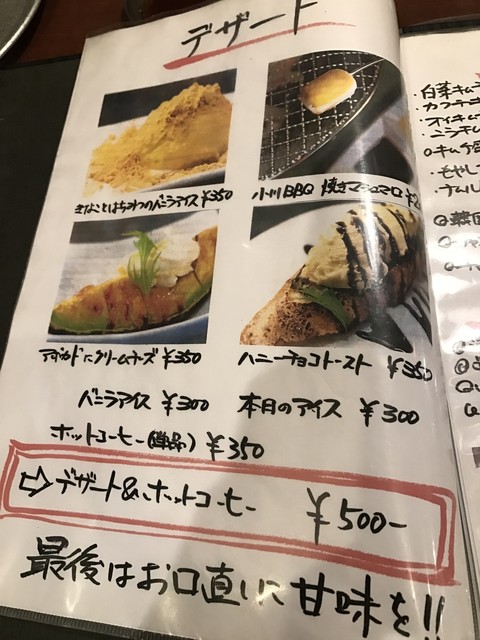 デザート
きなことはちみつのバニラアイス ¥350
小川BBQ 焼きマシュマロ
アボカドにクリームチーズ ¥350
ハニーチョコトースト ¥350
バニラアイス ¥300
本日のアイス ¥300
ホットコーヒー(単品) ¥350
⇨デザート&ホットコーヒー ¥500-
最後はお口直しに甘味を!!
・白菜キム
・カクテキ
・オイキム
・ニラキム
・もやし
・ナムル